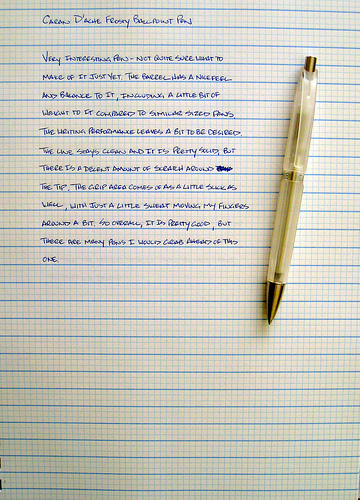 CARAN D'ACHE FROSTY BALLPOINT PEN
VERY INTERESTING PEN - NOT QUITE SURE WHAT TO
MAKE OF IT JUST YET. THE BARREL HAS A NICE FEEL
AND BALANCE TO IT, INCLUDING A LITTLE BIT OF
WEIGHT TO IT COMPARED TO SIMILAR SIZED PENS.
THE WRITING PERFORMANCE LEAVES A BIT TO BE DESIRED.
THE LINE STAYS CLEAN AND IT IS PRETTY SOLID, BUT
THERE IS A DECENT AMOUNT OF SCRATCH AROUND
THE TIP. THE GRIP AREA COMES OF AS A LITTLE SLICK AS
WELL, WITH JUST A LITTLE SWEAT MOVING MY FINGERS
AROUND A BIT. SO OVERALL, IT IS PRETTY GOOD, BUT
THERE ARE MANY PENS I WOULD GRAB AHEAD OF THIS
ONE.